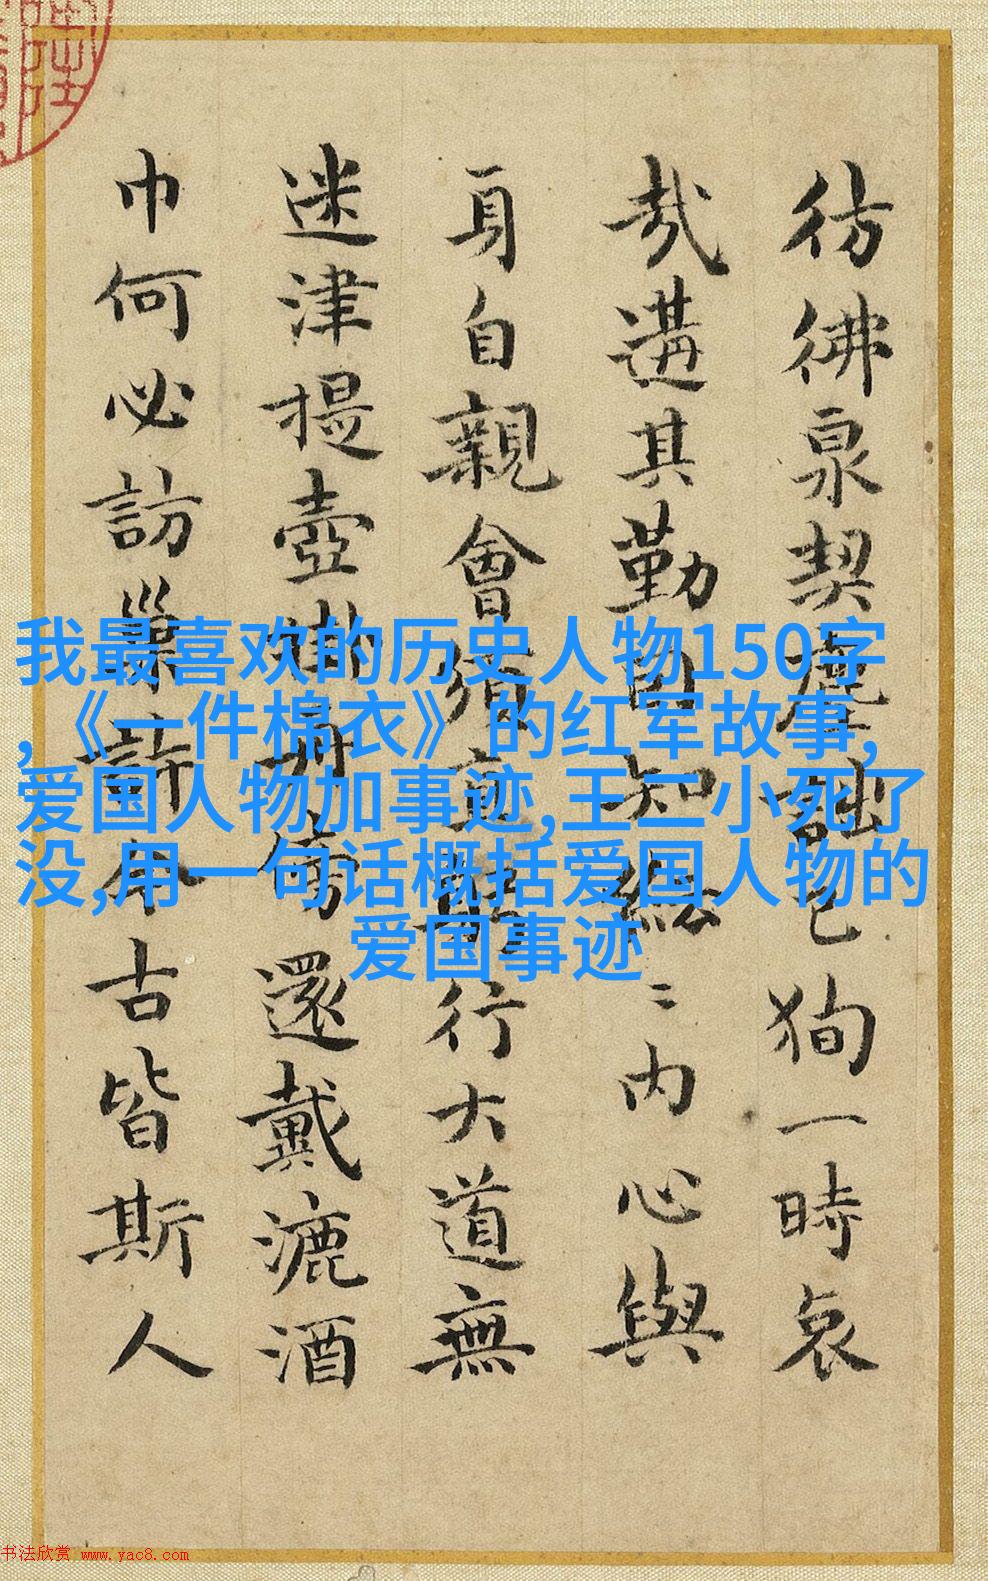 彷彿泉契塵詘已狥一時哀
哉遘其勤知絵〻内心與
身自親會須直行大道無
迷津提壺傍還戴漉酒
巾何必訪巢許今古皆斯人
我最喜欢的历史人物150字
,《一件棉衣》的红军故事,
爱国人物加事迹,王二小死了
没,用一句话概括爱国人物的
爱国事迹
书法欣赏 www.yac8.com